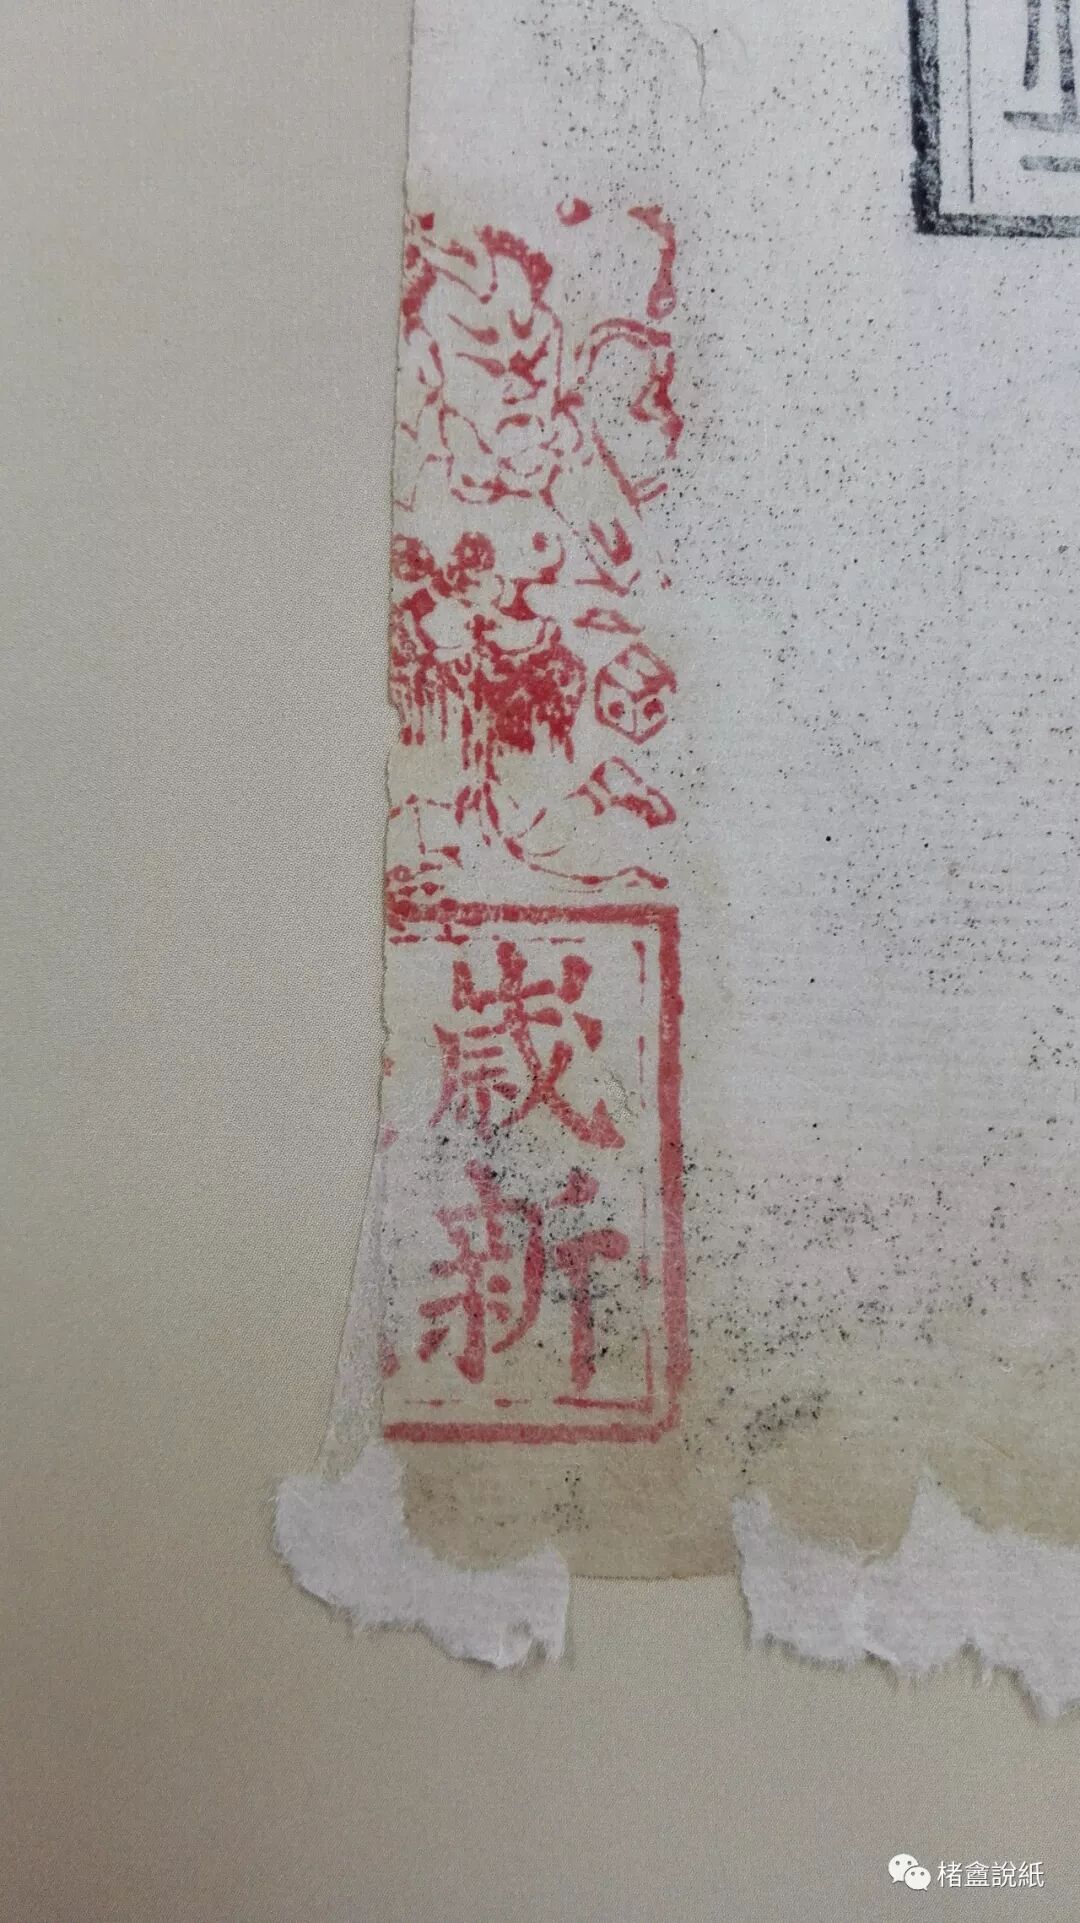 歲新
楮盦說紙